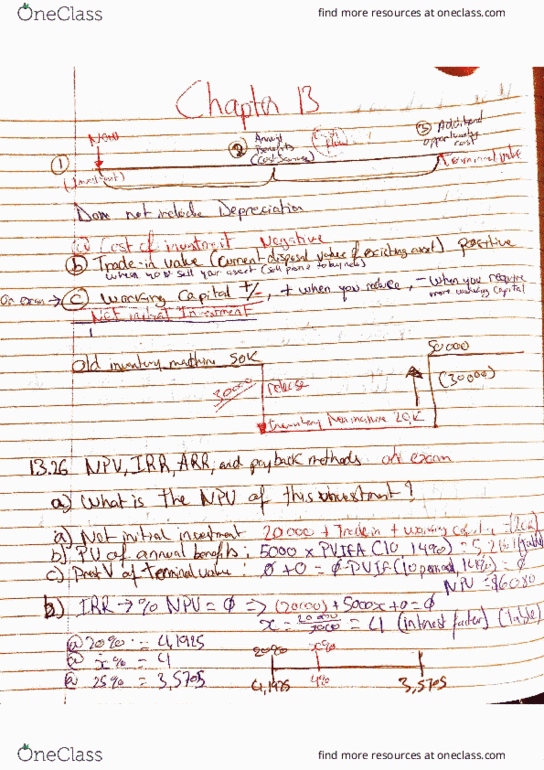 OneClass
find more resources at oneclass.com
Chapter 13
Now
① (Investment)
② Annual Benefits (Cost Savings) Cash flow
③ Additional opportunity cost
Terminal value
Does not include Depreciation
ⓐ Cost of investment Negative
ⓑ Trade-in value (current disposal value of existing asset) positive
when you sell your asset
On exam → ⓒ working capital +/-, + when you reduce, - when you require more working capital
Net initial Investment
Old inventory machine 50K
30000 release
Inventory New machine 20K
50000
(30000)
13.26 NPV, IRR, ARR, and payback methods on exam
a) What is the NPV of this investment?
a) Net initial investment 20000 + Trade in + working capital =
b) PV of annual benefits: 5000 x PVIFA (10, 14%) = 5,2161 (table)
c) Value of Terminal value: 0 + 0 = 0 PVIF (10 period, 14%) = 0
NPV = $6080
b) IRR → % NPV = 0 => (20000) + 5000x + 0 = 0
x = = 4 (interest factor) (table)
@ 20% = 4,1925
@ x% = 4
@ 25% = 3,5705
20% x%
4,1925 4% 3,5705
OneClass
find more resources at oneclass.com